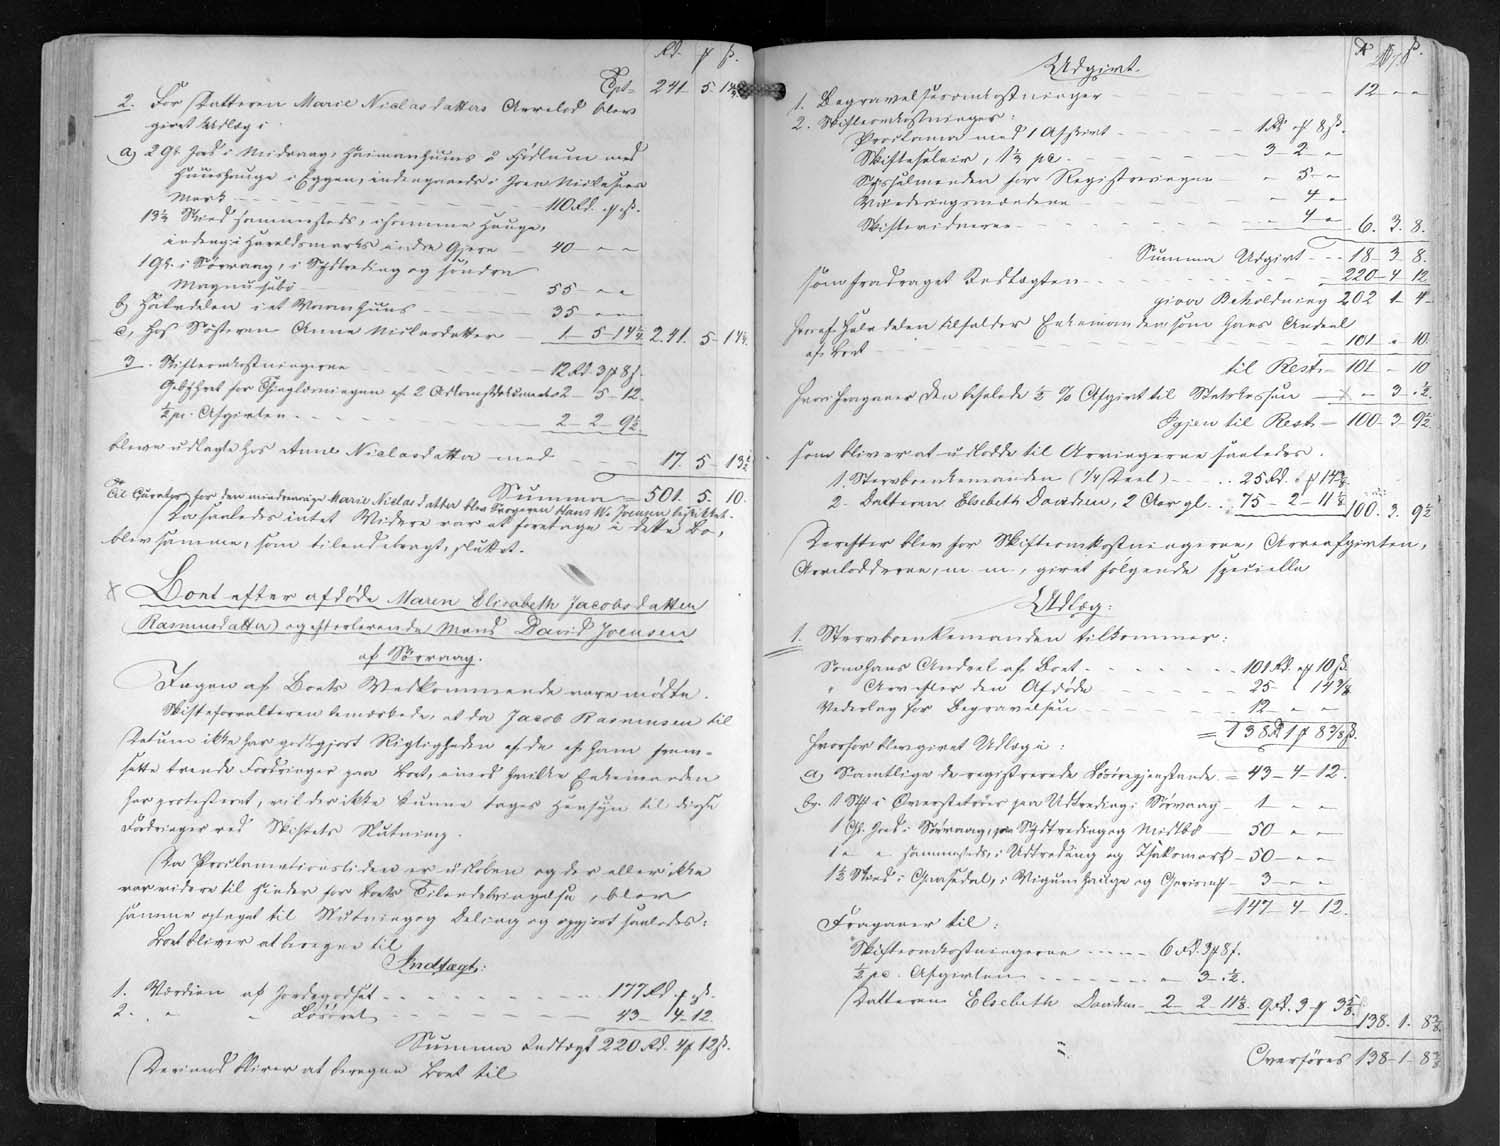 Rd. ₰ ß.
Tpt. 241 5 14½
2. For Datteren Marie Niclasdatters Arvelod blev
givet Udlæg i
a) 2 Gl. Jord i Midvaag, Heimanhuus á Fjødlum med
Huushauge i Eggen, indengaards i Joen Mickelsens
Mark 110 Rd. " ₰ " ß.
13½ Skind sammesteds, i samme Hauge,
indeng i Haraldsmark indre Gjera 40 " "
1 Gl. i Sørvaag, i Sydtreding og søndre
Magnusebø 55 " "
b) Halvdelen i et Vaanhuus 35 " "
c, hos Søsteren Anne Niclasdatter 1 5 14½ 241. 5 14½.
3. Skifteomkostningerne 12 Rd 3 ₰ 8 ß.
Gebyhret for Thinglæsningen af 2 Adkomstdokumenter 2 5 12.
½ pc. Afgivten 2 2 9½.
bleve udlagte hos Anne Niclasdatter med 17. 5 13½
Summa 501. 5. 10.
Til Curator for den mindreaarige Marie Niclasdatter blev Svogeren Hans W. Joensen beskikket.
Da saaledes intet Videre var at foretage i dette Bo,
blev samme, som tilendebragt, sluttet.
Boet efter afdøde Maren Elisabeth Jacobsdatter
(Rasmusdatter) og efterlevende Mand David Joensen
af Sørvaag.
Ingen af Boets Vedkommende vare mødte.
Skifteforvalteren bemærkede, at da Jacob Rasmussen til
Datum ikke har godtgjort Rigtigheden af de af ham frem-
satte trende Fordringer paa Boet, imod hvilke Enkemanden
har protesteret, vil der ikke kunne tages Hensyn til disse
Fordringer ved Skiftets Slutning.
Da Proclamationstiden er udløben og der eller ikke
var videre til Hinder for Boets Tilendebringelse, blev
samme optaget til Slutning og Deling og opgjort saaledes:
Boet bliver at beregne til
Indtægt:
1. Værdien af Jordegodset 177 Rd. " ₰ " ß.
2. " " Løsøret 43 4 12.
Summa Indtægt 220 Rd. 4 ₰ 12 ß.
Derimod bliver at beregne Boet til
Udgivt.
1. Begravelsesomkostninger 12 " "
2. Skifteomkostninger:
Proclama med 1 Afskrivt 1 Rd " ₰ 8 ß.
Skiftesalair, 1½ pc. 3 2 "
Sysselmanden for Registreringen " 5 "
Vurderingsmændene " 4 "
Skiftevidnerne " 4 " 6. 3. 8.
Summa Udgivt 18 3 8.
som fradraget Indtægten 220 4 12.
giver Beholdning 202 1 4
Heraf Halvdelen tilfalder Enkemanden som hans Andeel
af Boet 101 " 10.
til Rest. 101 " 10
hvorfra gaaer den befalede ½ % Afgivt til Statskassen " 3 ½.
Igjen til Rest 100 3 9½
som bliver at udlodde til Arvingerne saaledes.
1. Stervboenkemanden (1/4 Deel) 25 Rd. " ₰ 14 3/8 ß.
2. Datteren Elsebeth Davidsen, 2 Aar gl. 75 2 11 1/8 100. 3. 9½
Derefter blev for Skifteomkostningerne, Arveafgivten,
Arvelodderne, m. m., givet følgende specielle
Udlæg:
1. Stervboenkemanden tilkommer:
Som hans Andeel af Boet 101 Rd. " ₰ 10 ß.
" Arv efter den Afdøde 25 " 14 3/8
Vederlag for Begravelsen 12 " "
= 138 Rd 1 ₰ 8 3/8 ß.
hvorfor blev givet Udlæg i:
a) Samtlige de registrerede Løsøregjenstande = 43 4 12.
b. 1 Stk i Øverstetræer paa Udtreding i Sørvaag 1 " "
1 Gl. Jord i Sørvaag, paa Sydtreding og Midtbø 50 " "
1 " " sammesteds, i Udtreding og Isaksmark 50 " "
1½ Skind i Gaasedal, i Vigumhauge og 3 " "
= 147 4 12.
Fragaaer til:
Skifteomkostningerne 6 Rd. 3 ₰ 8 ß.
½ pc. Afgivten " 3 ½.
Datteren Elsebeth Davidsen 2 2 11 1/8. 9 Rd. 3 ₰ 3 5/8 ß. 138. 1. 8 3/8.
Overføres 138 1 8 3/8